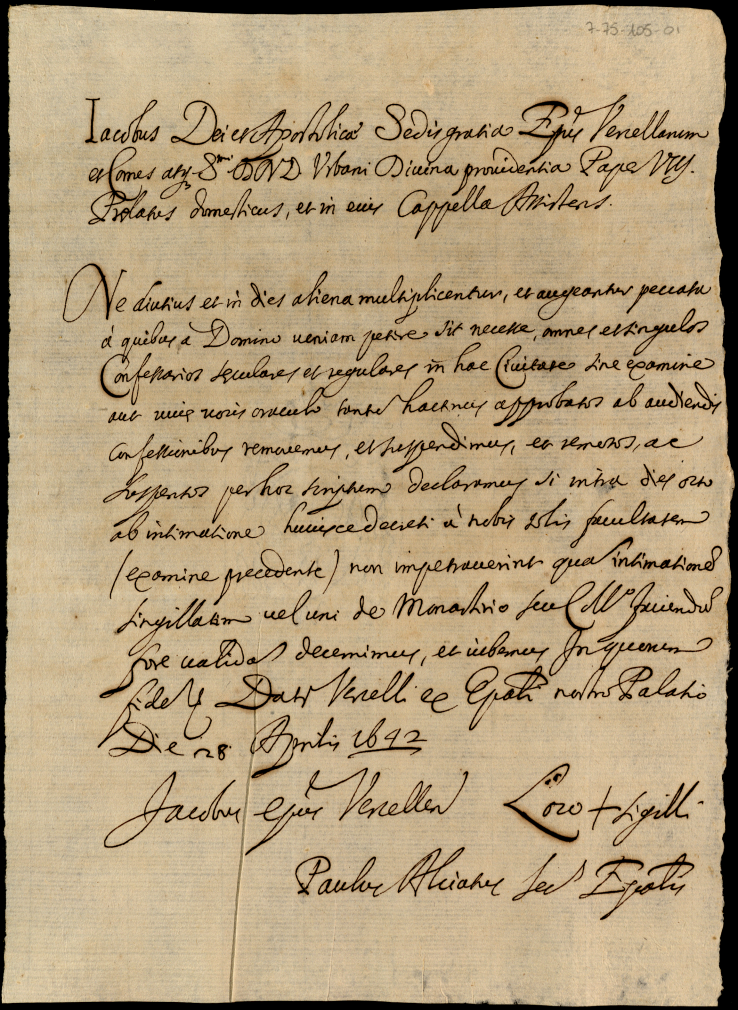 7-75-105-01
Iacobus Dei et Apostolicæ Sedis gratia Epũs Vercellarum
et Comes atq; S.mi D D N D Vrbani Diuina prouidentia Papæ VIIJ.
Prelatus domesticus, et in eius Cappella Assistens.
Ne diutius et in dies aliena multiplicentur, et augeantur peccata
á quibus á Domino ueniam petere sit necesse, omnes et singulos
Confessarios seculares et regulares in hac Ciuitate sine examine
aut uiuæ uocis oraculo hactenus approbatos ab audiendis
confessionibus remouemus, et suspendimus, et remotos, ac
suspensos per hoc scriptum declaramus si intra dies octo
ab intimatione huiusce decreti á nobis solis facultatem
(examine precedente) non impetrauerint quas intimationes
singillatim uel uni de Monasterio seu faciendas
fore ualidas decernimus, et iubemus In quorum
fidem Dat Vercelli ex Epali nostro Palatio
Die 28 Aprilis 1642
Jacobus epũs Vercellen Loco + sigilli
Paulus Alciatus Sec.s Epalis